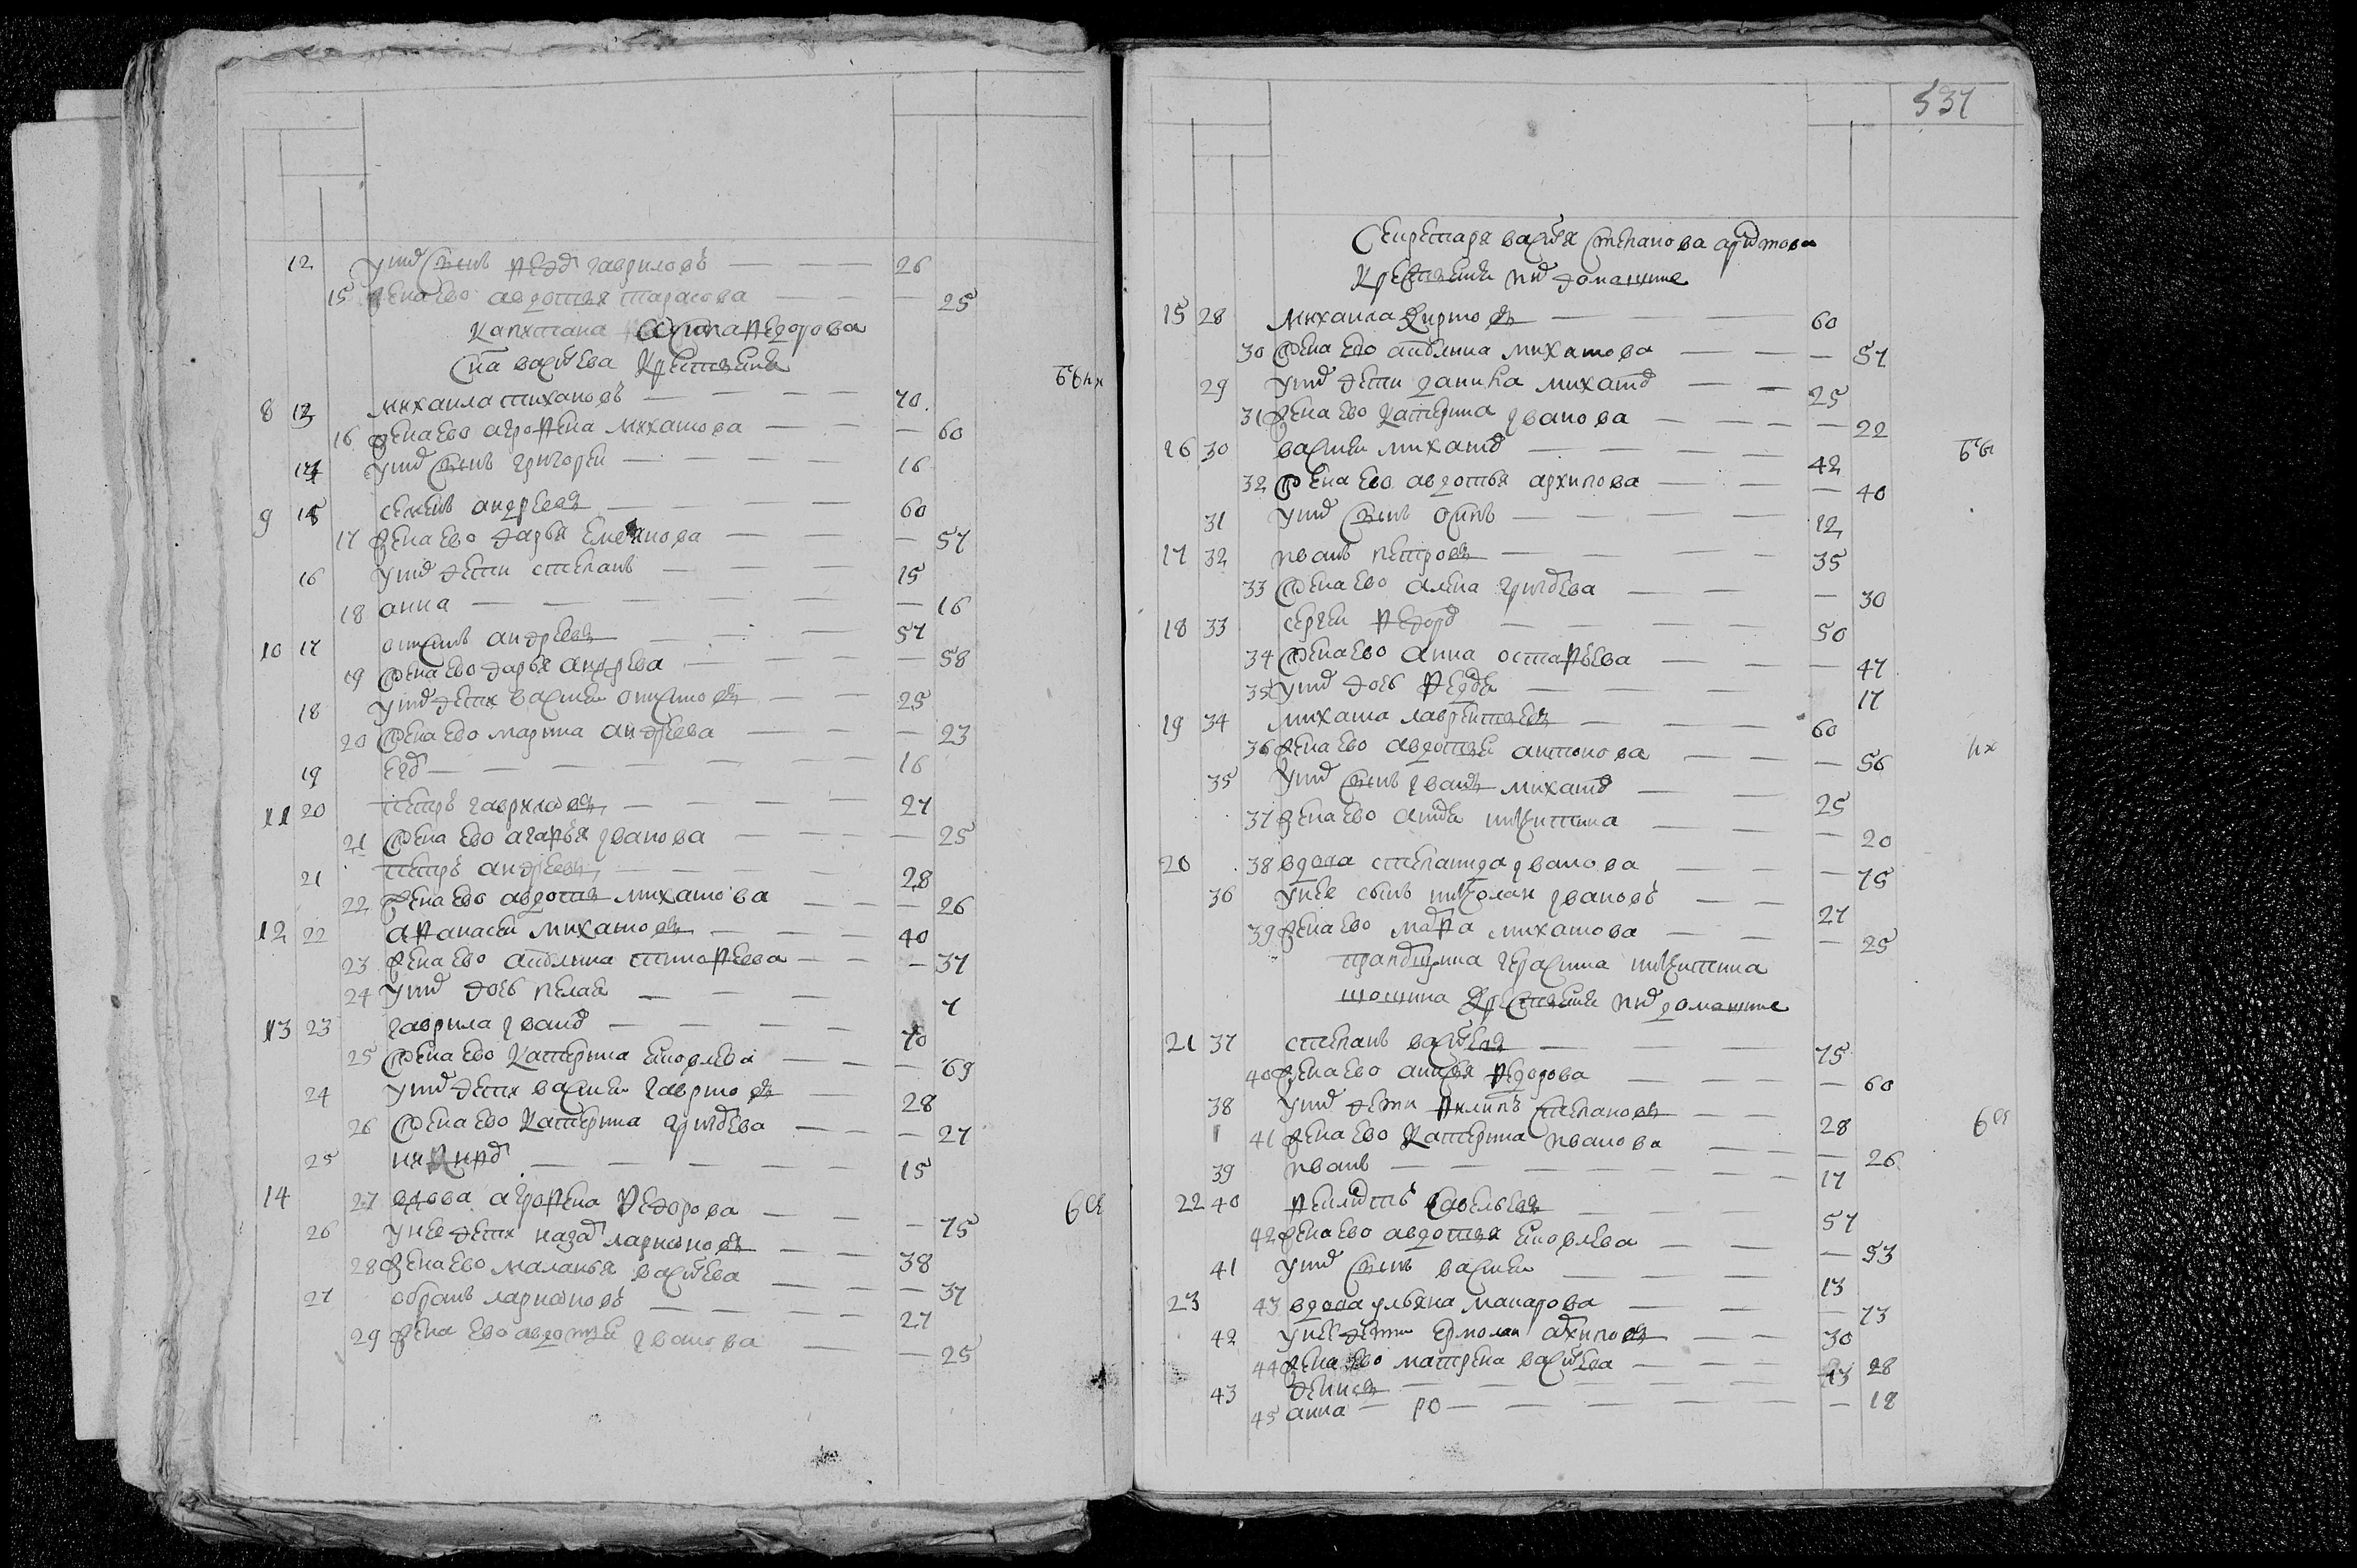 12 у нит сынъ федоръ гавриловъ — — 26
15 жена ево авдотья тарасова — — — 25
капитана осипа федорова
сна васильева крестьяня
8 13 михаила тихановъ — — — 70
16 жена ево агрофена михаилова — — — 60
14 у нит сынъ григореи — — — 16
9 15 семенъ андреевъ — — — 60
17 жена ево дарья емелянова — — — 57
16 у нит дети степанъ — — — 15
18 анна — — — — 16
10 17 онисимъ андреевъ — — — 57
19 жена ево дарья андреева — — — 58
18 у нит дети василеи онисимовъ — — 25
20 жена ево марина андреева — — — 23
19 — — — — — 16
11 20 петръ гавриловъ — — — 27
21 жена ево агафья иванова — — — 25
21 петръ андреевъ — — — 28
22 жена ево авдотья михаилова — — — 26
12 22 афанасеи михаиловъ — — — 40
23 жена ево тимофеева — — — 37
24 у нит дочь пелагея — — — 7
13 23 гаврила ивановъ — — — 70
25 жена ево катерина яковлева — — — 69
24 у нит дети василеи гавриловъ — — 28
26 жена ево катерина григорева — — — 27
25 никифоръ — — — — 15
14 27 вдова агрофена федорова — — — 75
26 у нее дети назаръ ларионовъ — — 38
28 жена ево маланья васильева — — — 37
27 ларионовъ — — — — 27
29 жена ево авдотья иванова — — 25
537
секретаря василья степанова
крестьяня домашние
15 28 михаила кириловъ — — — 60
30 жена ево михаилова — — — 57
29 у нит дети данила михаиловъ — — 25
31 жена ево катерина иванова — — — 22
16 30 василеи михаиловъ — — — 42
32 жена ево авдотья архипова — — — 40
31 у нит сынъ осипъ — — — 12
17 32 иванъ петровъ — — — 35
33 жена ево алена григорева — — — 30
18 33 сергеи федоровъ — — — 50
34 жена ево анна остафьева — — — 47
35 у нит дочь — — — 17
19 34 михаила лаврентьевъ — — — 60
36 жена ево авдотья антонова — — — 56
35 у нит сынъ иванъ михаиловъ — — 25
37 жена ево никитина — — — 20
20 38 вдова степанида иванова — — — 75
36 у нее сынъ николаи ивановъ — — 27
39 жена ево марфа михаилова — — — 25
герасима никитина
шошина крестьяня домашние
21 37 степанъ васильевъ — — — 75
40 жена ево анисья федорова — — — 60
38 у нит дети филипъ степановъ — — 28
41 жена ево катерина иванова — — — 26
39 иванъ — — — — 17
22 40 савельевъ — — — 57
42 жена ево авдотья яковлева — — — 53
41 у нит сынъ василеи — — — 13
23 43 вдова ульяна макарова — — — 73
42 у нее дети ермолаи архиповъ — — 30
44 жена ево матрена васильева — — — 28
43 денисъ — — — — 13
45 анна — — — — 18